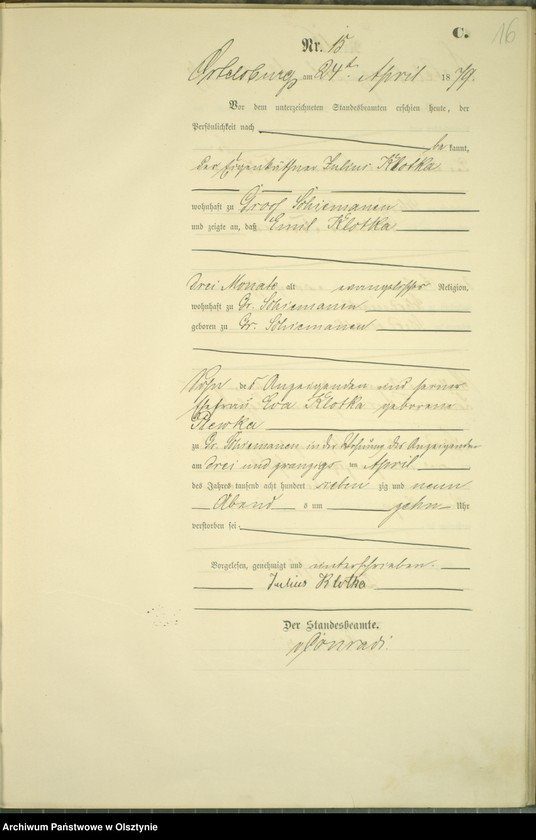 C.
16
Nr. 15
Ortelsburg am 24t. April 1879.
Vor dem unterzeichneten Standesbeamten erschien heute, der
Persönlichkeit nach
be kannt,
der Eigenkäthner Julius Klotka
wohnhaft zu Gross Schiemanen
und zeigte an, daß Emil Klotka
drei Monate alt evangelischer Religion,
wohnhaft zu Gr. Schiemanen
geboren zu Gr. Schiemanen
Sohn des Anzeigenden und seiner
Ehefrau Eva Klotka geborene
zu Gr. Schiemanen in der Wohnung des Anzeigenden
am drei und zwanzigs ten April
des Jahres tausend acht hundert sieben zig und neun
Abend s um zehn Uhr
verstorben sei.
Vorgelesen, genehmigt und unterschrieben.
Julius Klotka
Der Standesbeamte.
vConradi.
Archiwum Państwowe w Olsztynie